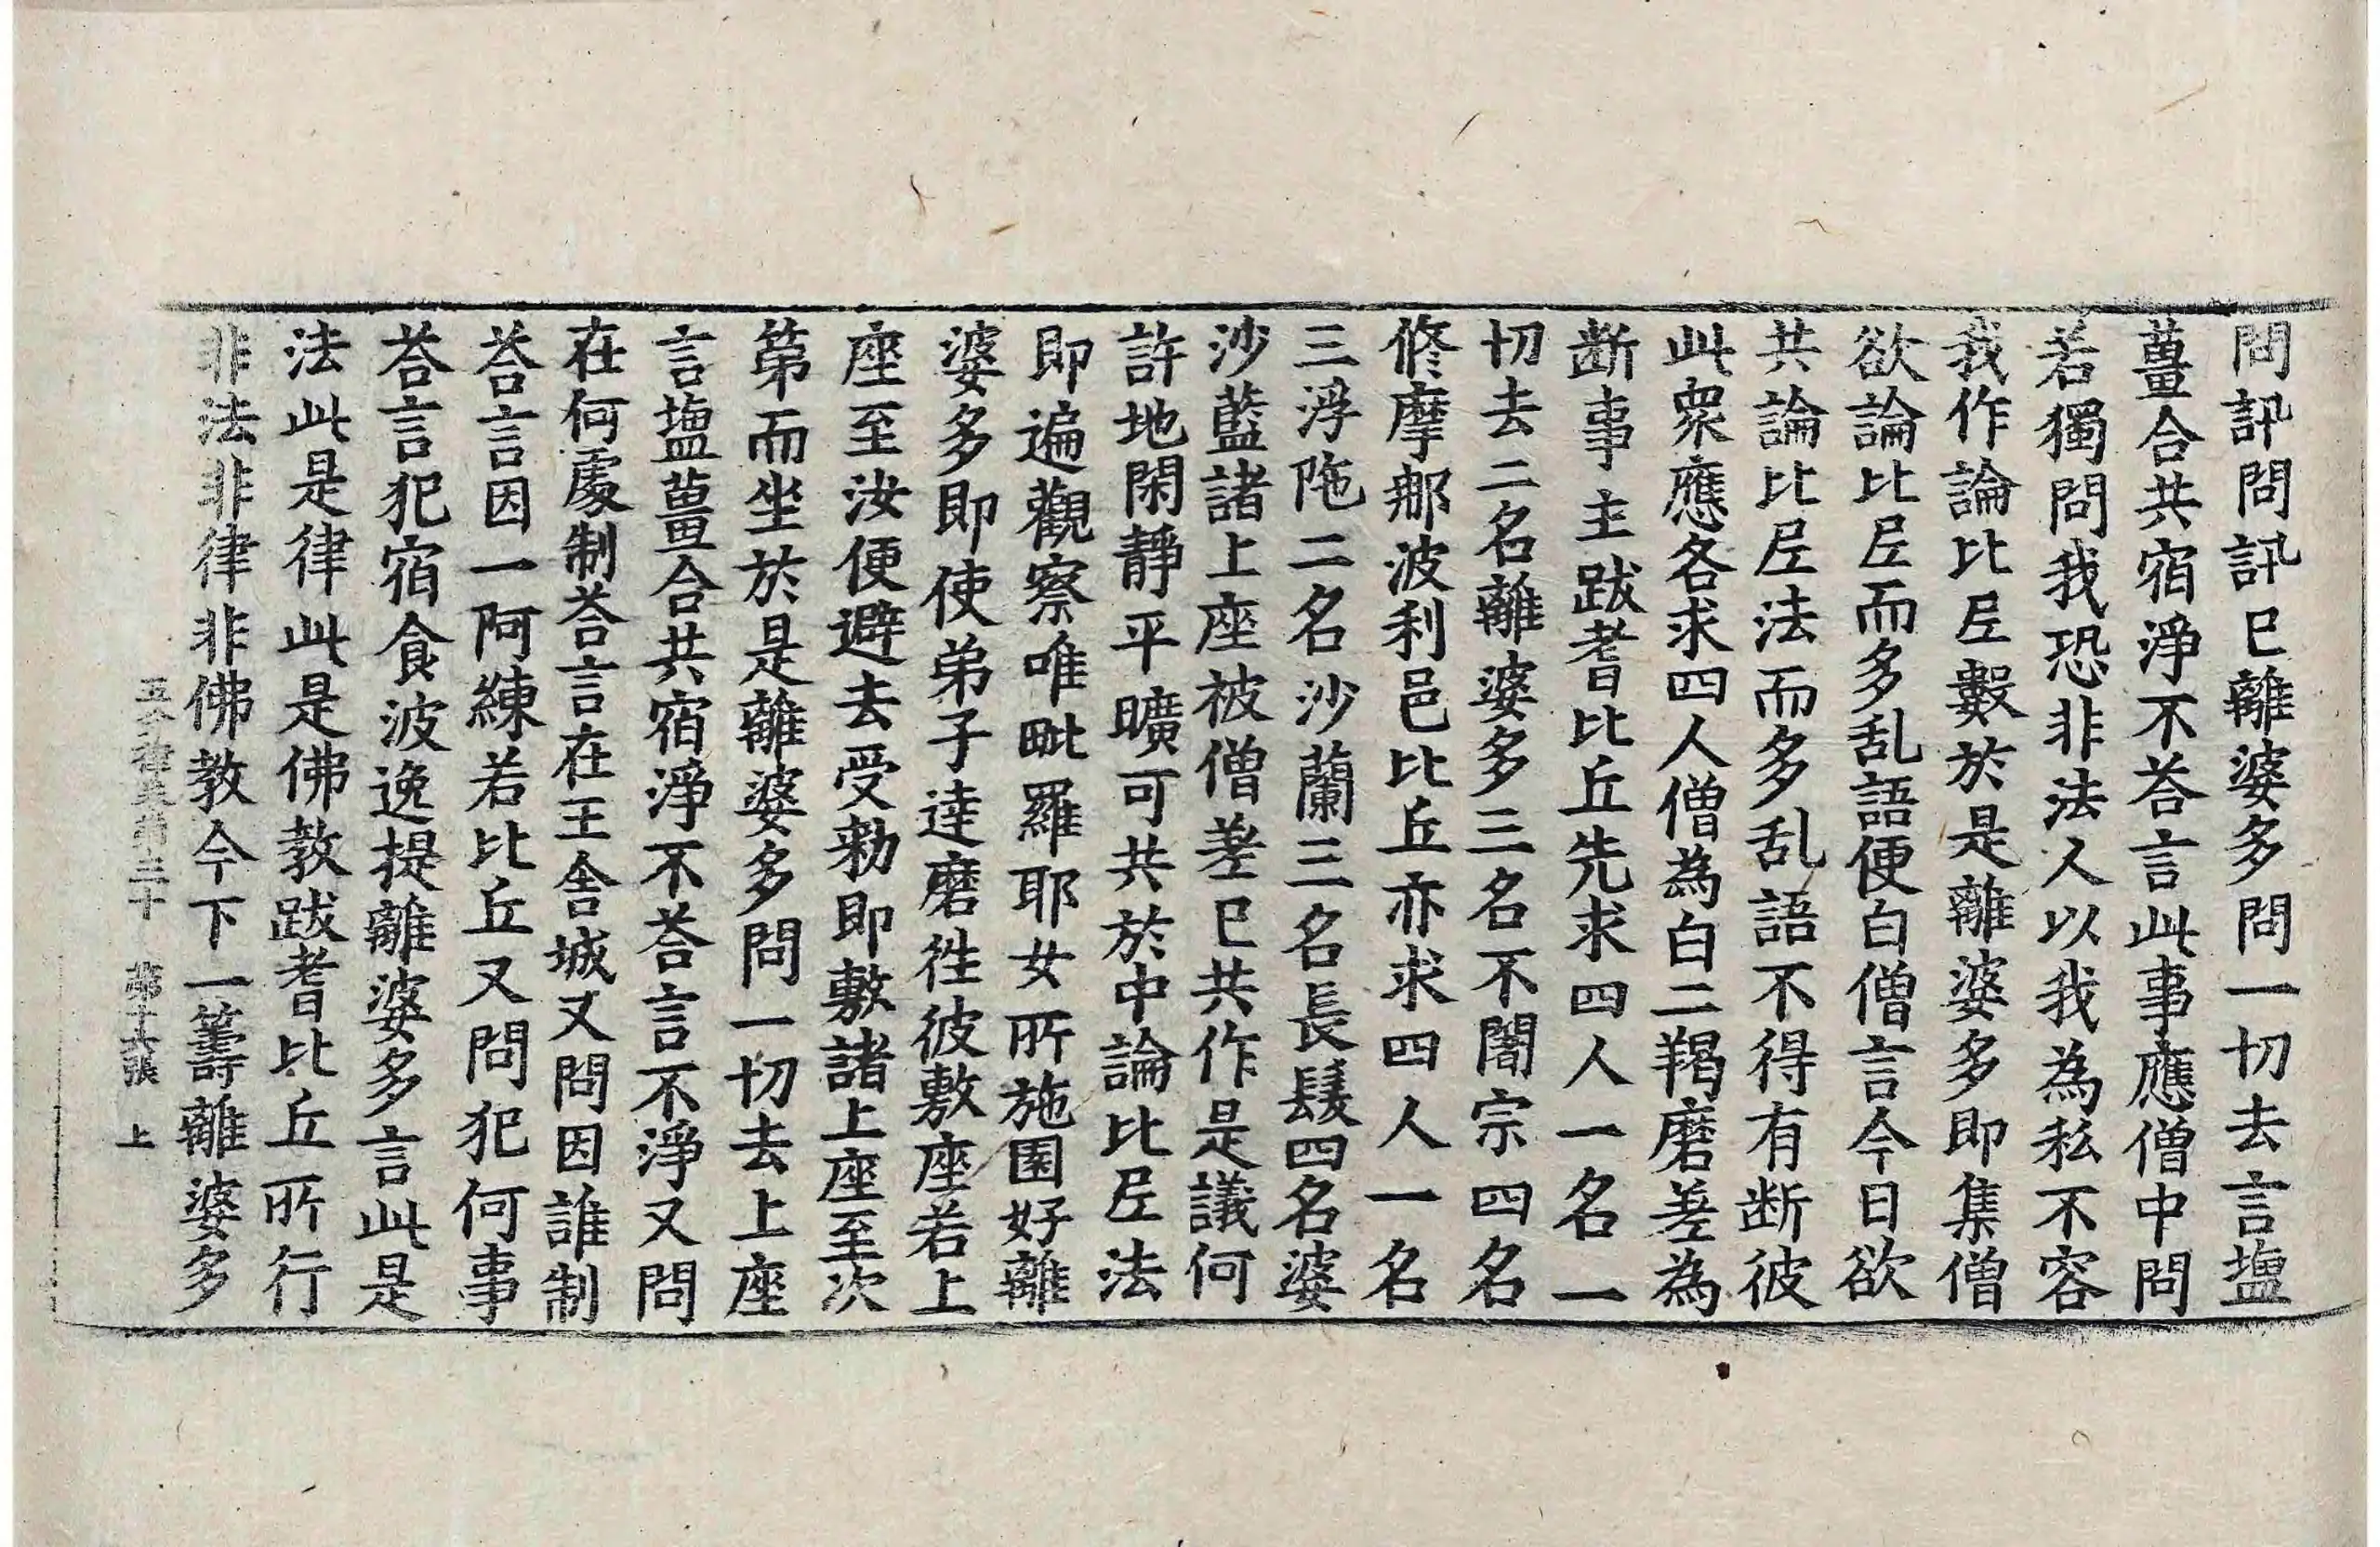 問訊問訊已離婆多問一切去言塩
薑合共宿淨不荅言此事應僧中問
若獨問我恐非法人以我為私不容
我作論比𡰱數於是離婆多即集僧
欲論比𡰱而多乱語便白僧言今日欲
共論比𡰱法而多乱語不得有断彼
此衆應各求四人僧為白二羯磨差為
断事主跋耆比丘先求四人一名一
切去二名離婆多三名不闍宗四名
脩摩那波利邑比丘亦求四人一名
三浮陁二名沙蘭三名長髮四名婆
沙藍諸上座被僧差已共作是議何
許地閑靜平曠可共於中論比𡰱法
即遍觀察唯毗羅耶女所施園好離
婆多即使弟子達磨徃彼敷座若上
座至汝便避去受勑即敷諸上座至次
第而坐於是離婆多問一切去上座
言塩薑合共宿淨不荅言不淨又問
在何處制荅言在王舍城又問因誰制
荅言因一阿練若比丘又問犯何事
荅言犯宿食波逸提離婆多言此是
法此是律此是佛教跋耆比丘所行
非法非律非佛教今下一籌離婆多
五分律 第三十 第十 張 上